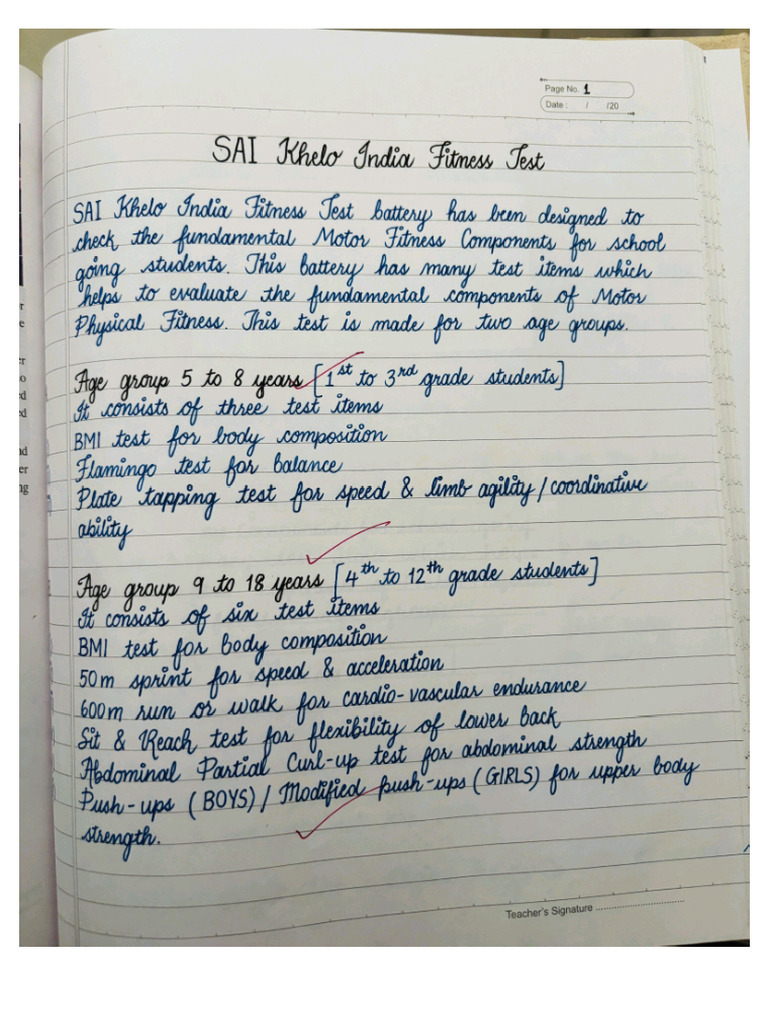 Page No. 1
Date : / /20
SAI Khelo India Fitness Test
SAI Khelo India Fitness Test battery has been designed to
check the fundamental Motor Fitness Components for school
going students. This battery has many test items which
helps to evaluate the fundamental components of Motor
Physical Fitness. This test is made for two age groups.
Age group 5 to 8 years [1st to 3rd grade students]
It consists of three test items
BMI test for body composition
Flamingo test for balance
Plate tapping test for speed & limb agility/coordinative
ability
Age group 9 to 18 years [4th to 12th grade students]
It consists of six test items
BMI test for body composition
50m sprint for speed & acceleration
600m run or walk for cardio-vascular endurance
Sit & Reach test for flexibility of lower back
Abdominal Partial Curl-up test for abdominal strength
Push-ups (BOYS) / Modified push-ups (GIRLS) for upper body
strength.
Teacher's Signature ................................